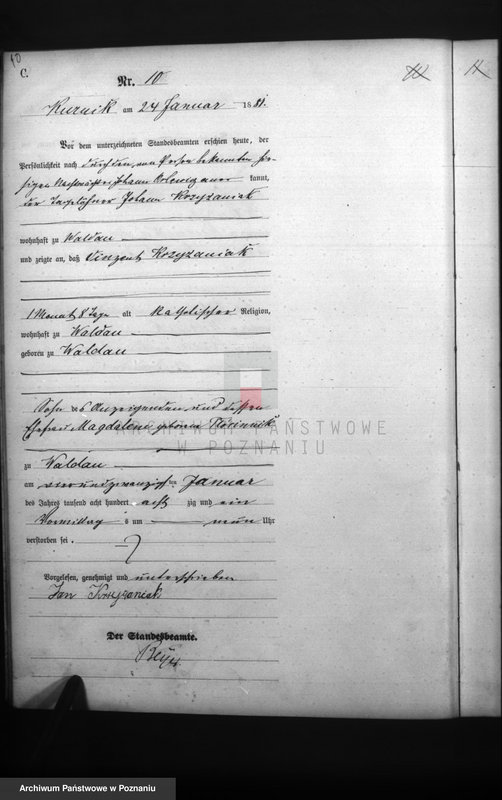 10
C.
Nr. 10
Kurnik am 24 Januar 1881.
Vor dem unterzeichneten Standesbeamten erschien heute, der
Persönlichkeit nach durch den, von Person bekannten hie-
sigen Nachtwächter Johann kannt,
der Tagelöhner Johann Krzyzaniak
wohnhaft zu Waldau
und zeigte an, daß Vinzent Krzyzaniak
1 Monat 8 Tage alt katholischer Religion,
wohnhaft zu Waldau
geboren zu Waldau
Sohn des Anzeigenden und dessen
Ehefrau Magdalena geborene
zu Waldau
am vierundzwanzigsten Januar
des Jahres tausend acht hundert achtzig und ein
Vormittags um neun Uhr
verstorben sei.
Vorgelesen, genehmigt und unterschrieben
Jan Krzyzaniak
Der Standesbeamte.
11
ARCHIWUM PAŃSTWOWE
W POZNANIU
Archiwum Państwowe w Poznaniu